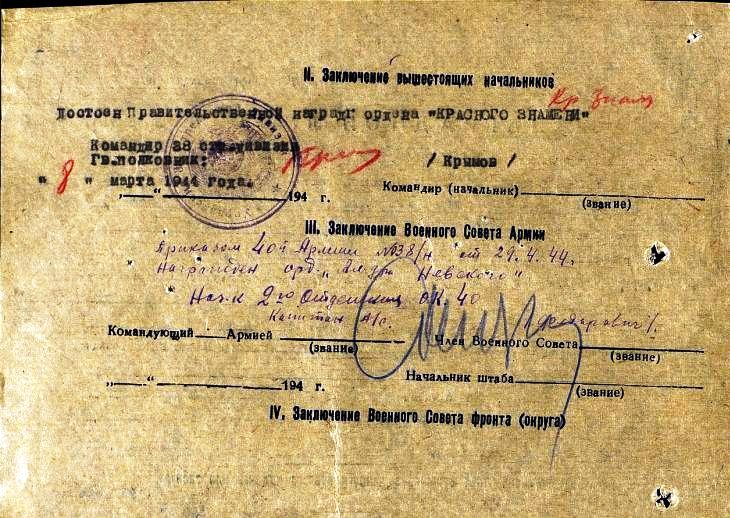 II. Заключение вышестоящих начальников
Кр Знамя
Достоен Правительственной награды ордена "КРАСНОГО ЗНАМЕНИ"
Командир 38 стр.дивизии
Гв.полковник: /Крымов/
"8" марта 1944 года.
„——“ 194 г. Командир (начальник)
(звание)
III. Заключение Военного Совета Армии
Приказом 40й Армии №38/н от 29.4.44.
Награжден орд. „ Невского"
Нач-к 2го Отделения ОК 40
Капитан А/с.
Командующий Армией Член Военного Совета
(звание) (звание)
„——“ 194 г. Начальник штаба
(звание)
IV. Заключение Военного Совета фронта (округа)